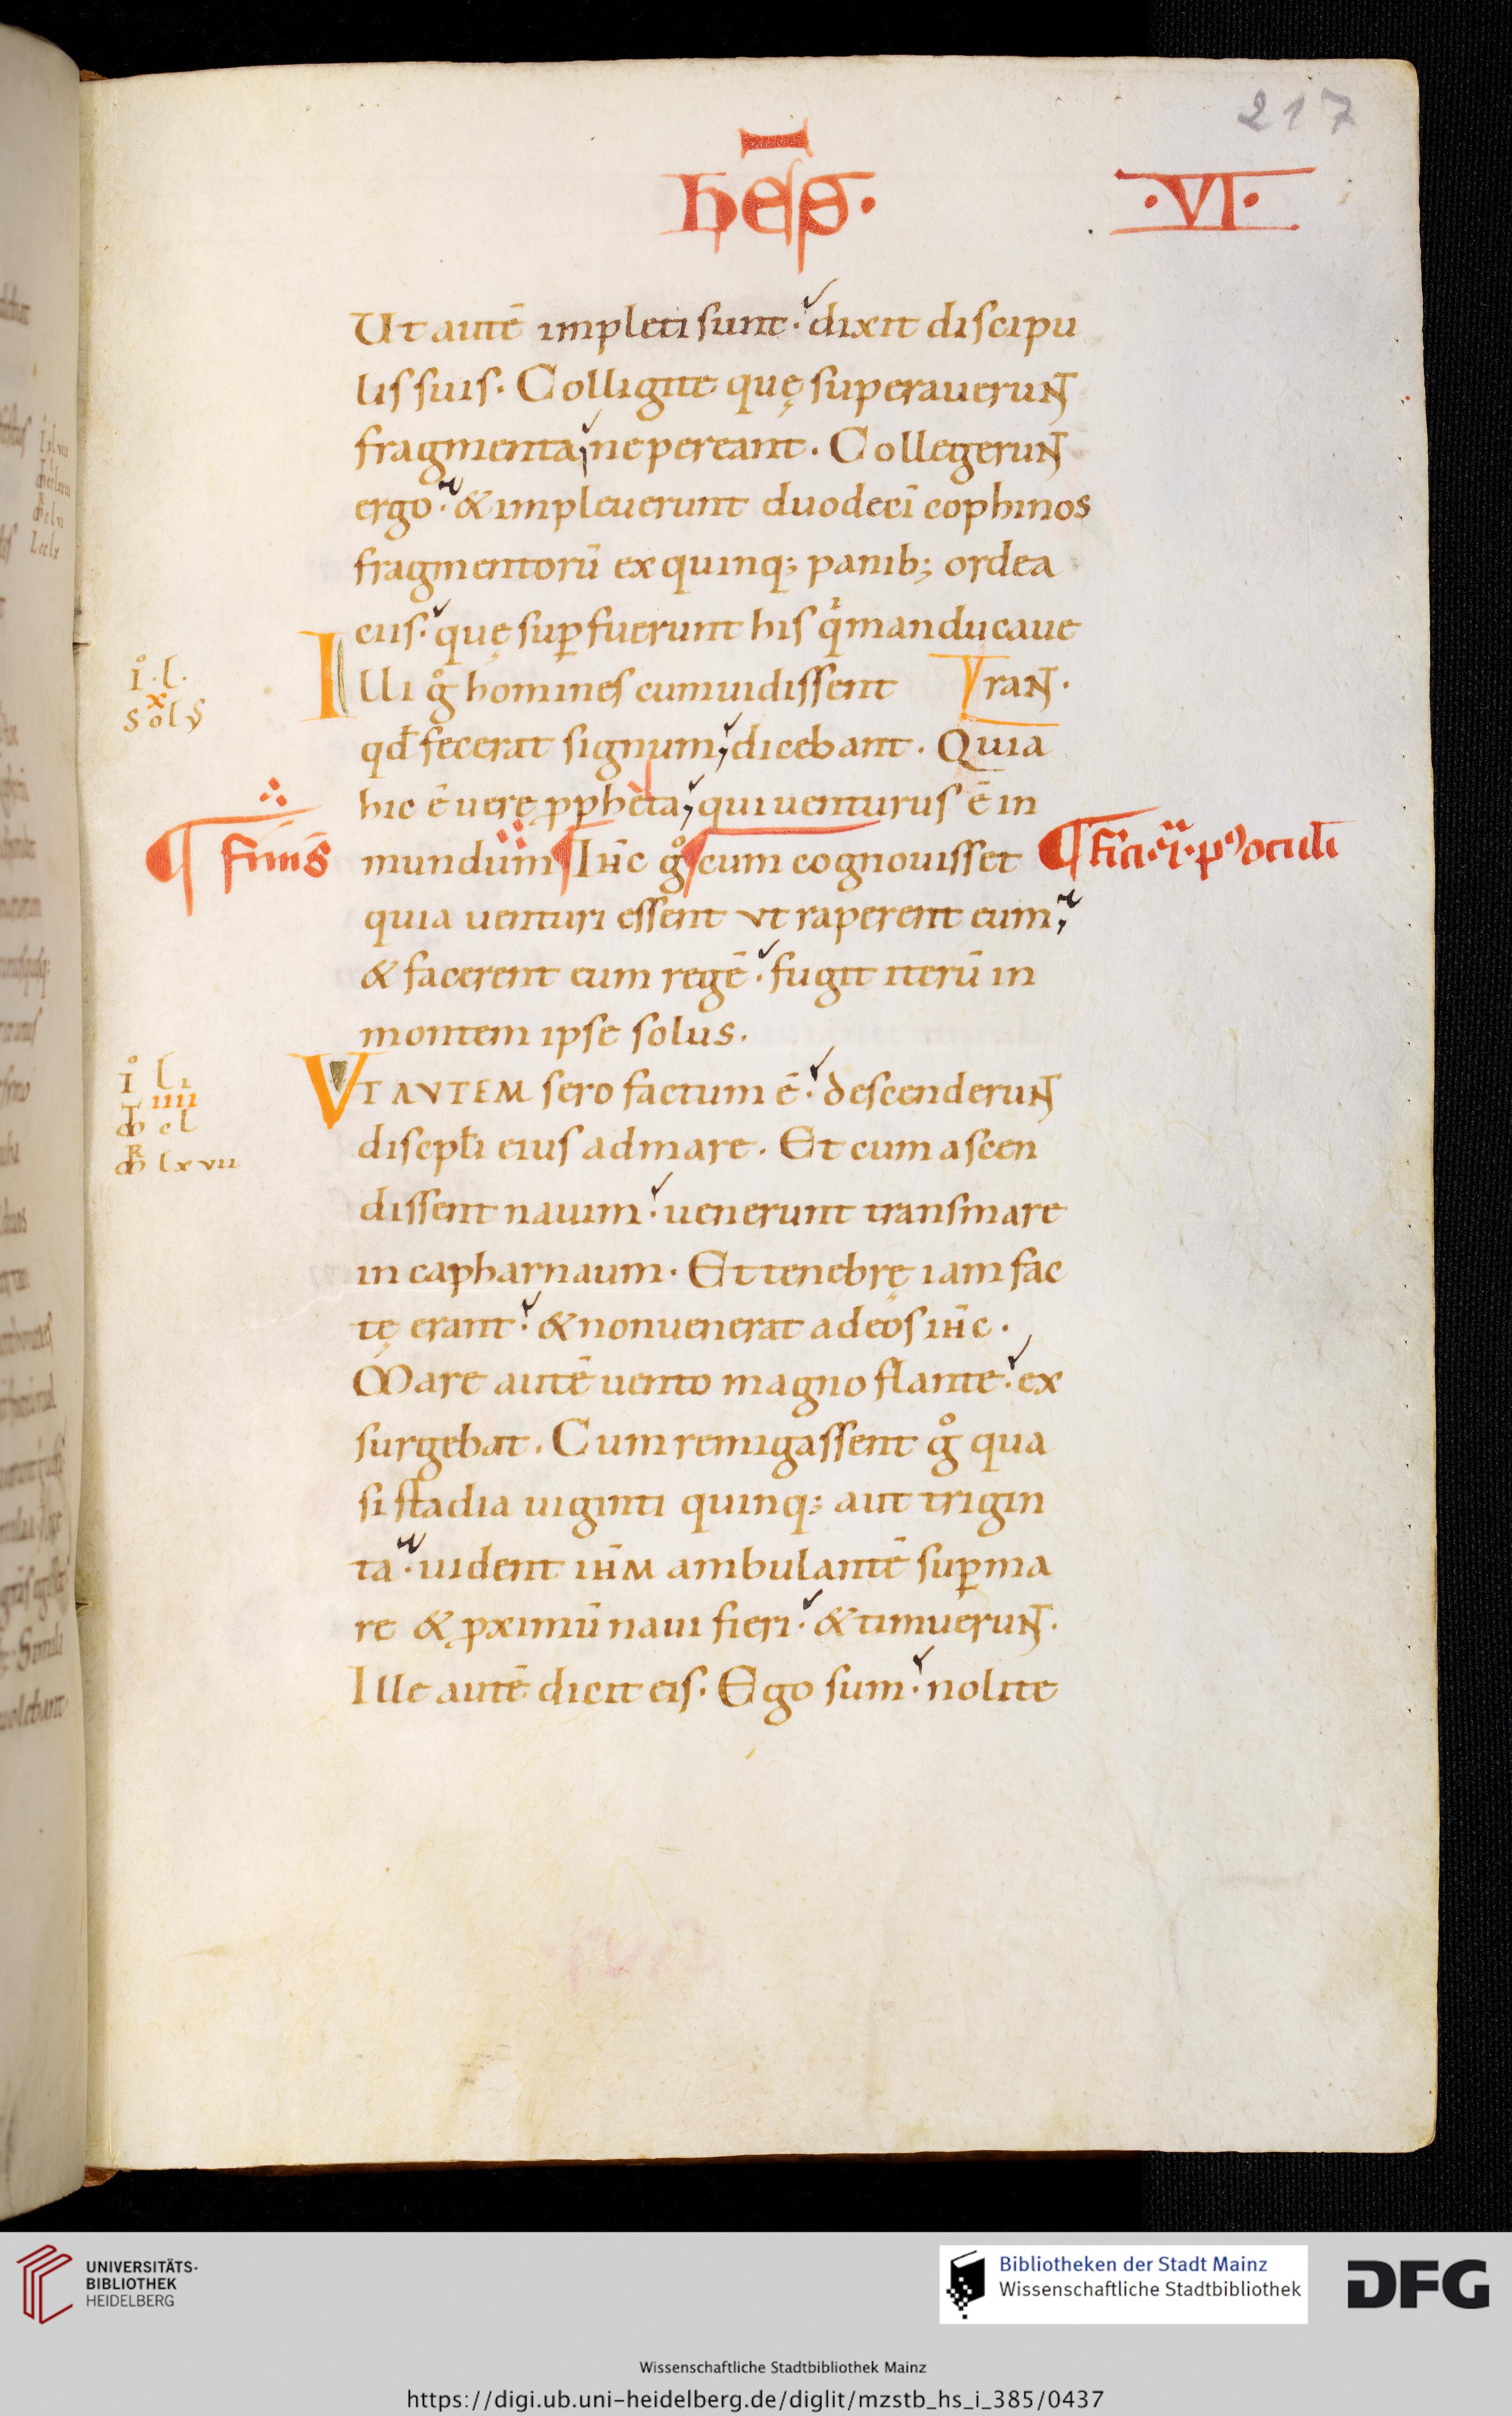 217
hēs·
·VI·
Ut autē impleti sunt· dixit discipu
lis suis· Colligite quę superauerunt
fragmenta, ne pereant. Collegerunt
ergo· & impleuerunt duodecī cophinos
fragmentorū ex quinq; panib; ordea
ciis· quę suꝑfuerunt his q̇ manducaue
Illi g̊ homines cum uidissent rant·
qd̄ fecerat signum, dicebant. Quia
hic ē uere ꝓpheta, qui uenturus ē in
mundum Ihc̄ g̊ cum cognouisset
quia uenturi essent ut raperent eum,
& facerent eum regē· fugit iterū in
montem ipse solus.
VT AVTEM sero factum ē· descenderunt
discipłi eius ad mare. Et cum ascen
dissent nauim· uenerunt trans mare
in capharnaum. Et tenebrę iam fac
tę erant· & non uenerat ad eos ihc̄.
Mare autē uento magno flante· ex
surgebat. Cum remigassent g̊ qua
si stadia uiginti quinq; aut trigin
ta· uident ihm̄ ambulantē suꝑ ma
re & ꝓximū naui fieri· & timuerunt.
Ille autē dicit eis. Ego sum· nolite
I l
x
Sol's
finis
I li
iiii
M cl
MR lxvii
UNIVERSITÄTS-
BIBLIOTHEK
HEIDELBERG
Bibliotheken der Stadt Mainz
Wissenschaftliche Stadtbibliothek
DFG
Wissenschaftliche Stadtbibliothek Mainz
https://digi.ub.uni-heidelberg.de/diglit/mzstb_hs_i_385/0437